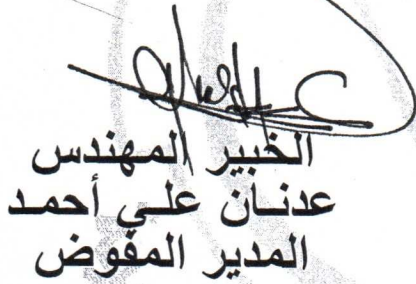 الخبير المهندس
عدنان علي أحمد
المدير المفوض